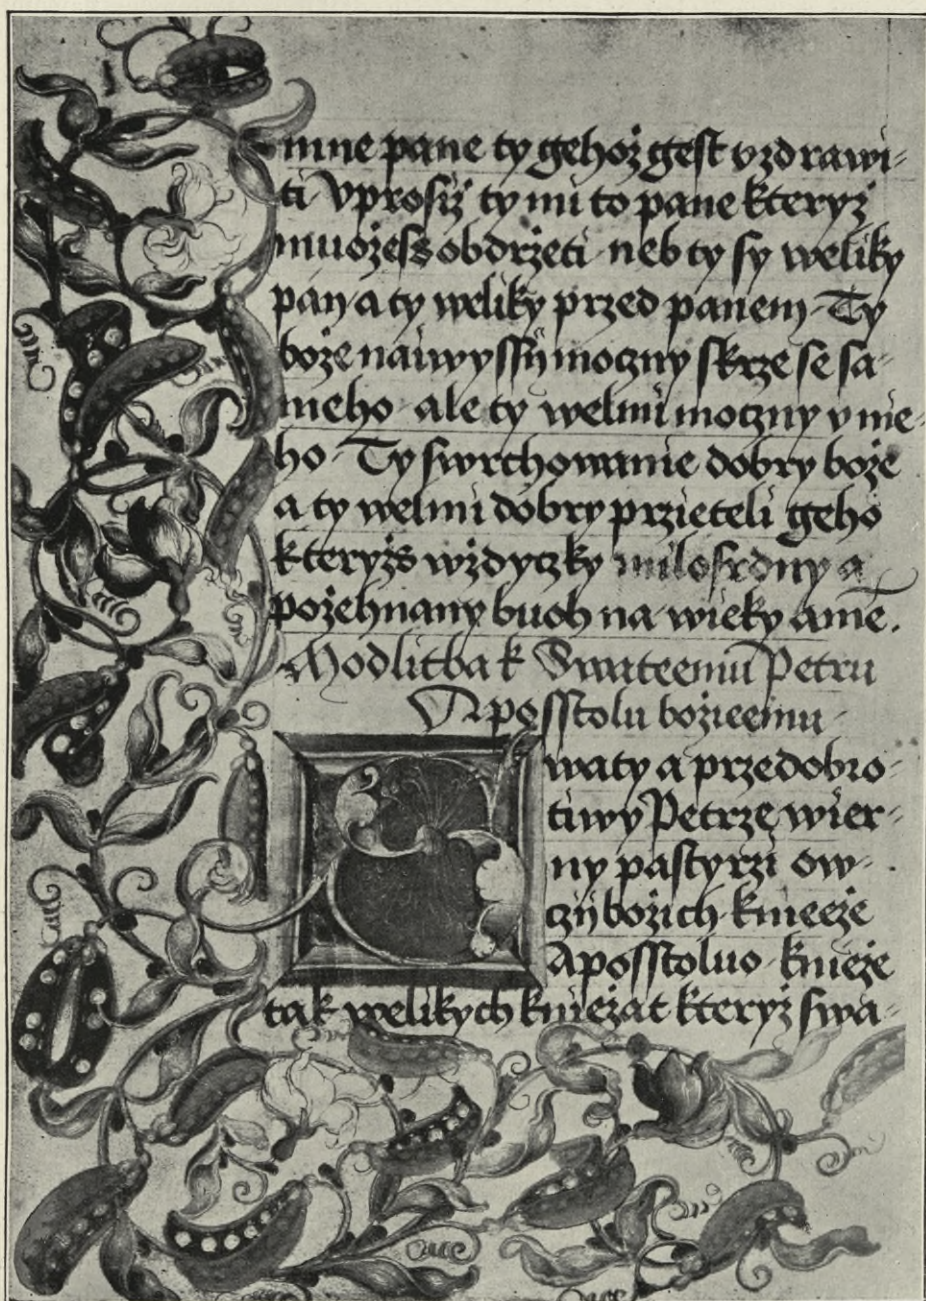 mne pane ty gehož gest vzdrawi-
ti Vprosiž ty mi to pane kteryz
muožess obdržeti neb ty sy weliky
pan a ty weliky przed panem Ty
bože naiwyssij moczny skrze se sa-
meho ale ty welmi moczny v nie-
ho Ty swrchowanie dobry bože
a ty welmi dobry przieteli geho
kteryžs wždyczky milosrdny a
požehnany buoh na wieky amē.
Modlitba k Swateemu Petru
Aposstolu božieemu
S waty a przedobro-
tiwy Petrze wier-
ny pastyrzi ow-
czij božich knieeže
Aposstoluo knieže
tak welikych kniežat kteryž swa-